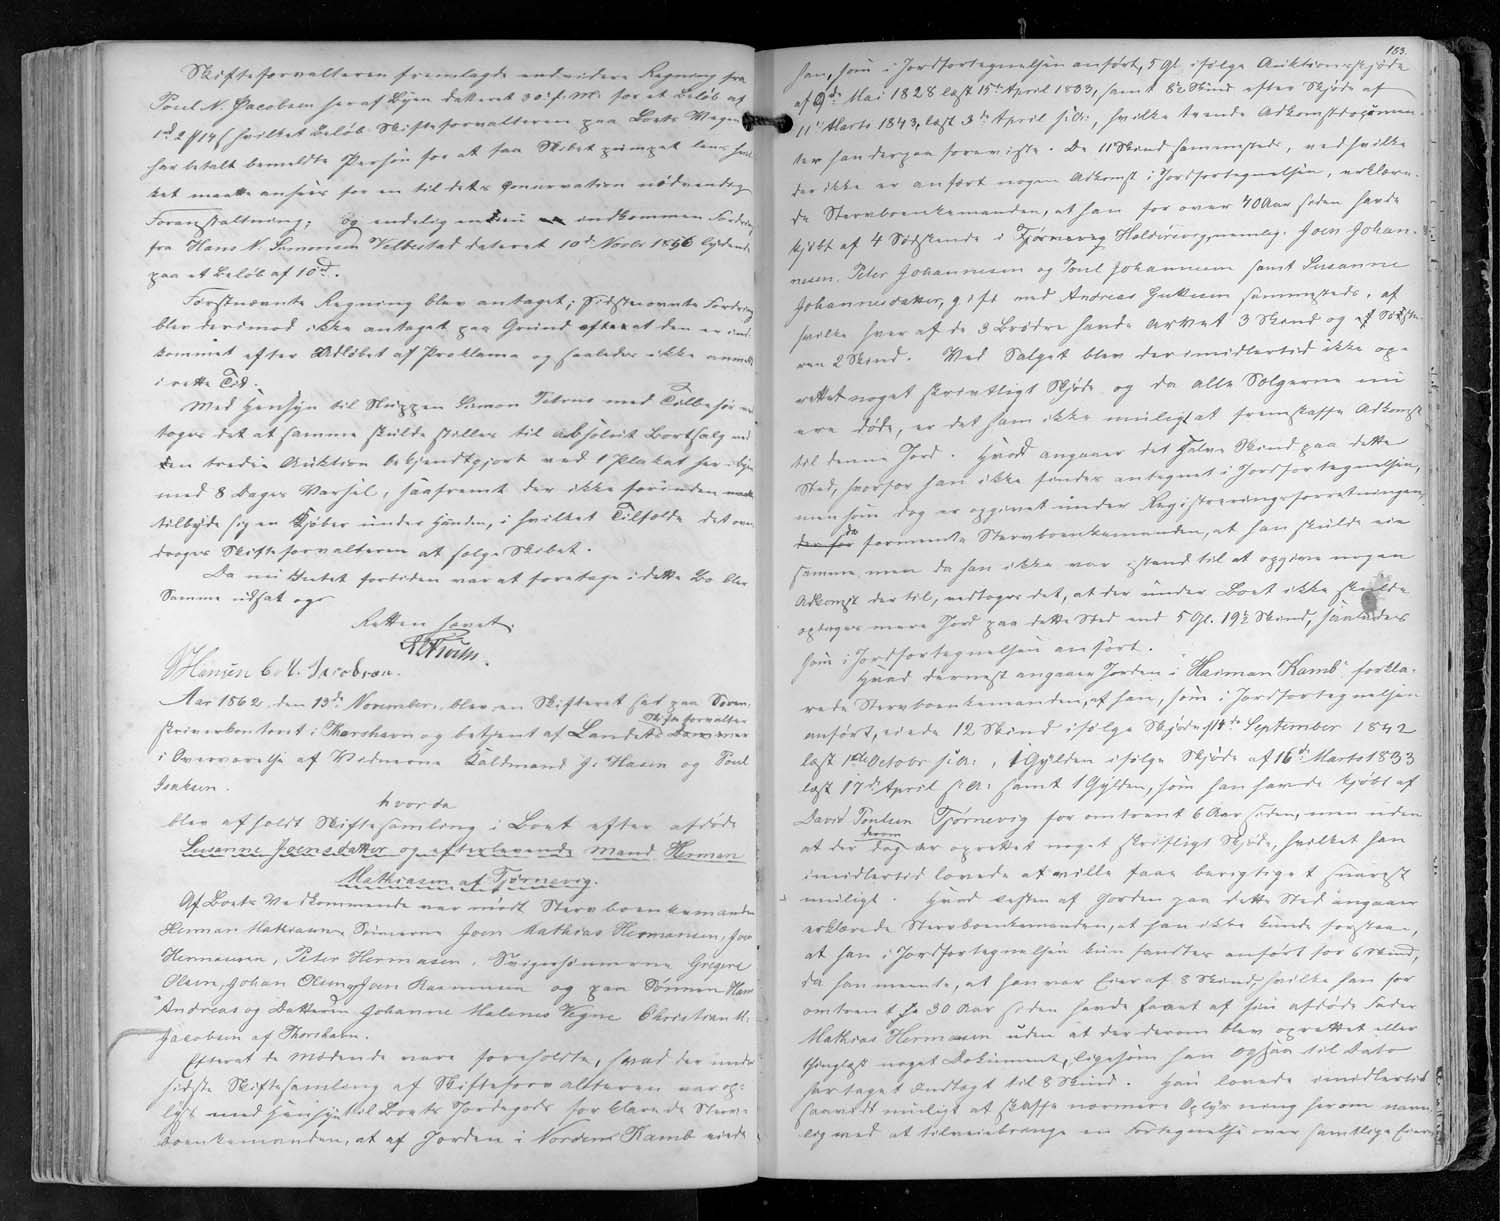 Skifteforvalteren fremlagde endvidere Regning fra
Poul N. Jacobsen her af Byen dateret 30 f. M. for et Beløb af
1rd 2 # 14 s hvilket Beløb Skifteforvalteren paa Boets Vegne
har betalt bemeldte Person for at faa Skibet pumpet læns hvil
ket maatte ansees for en til dets Conservation nødvendig
Foranstaltning; og endelig en indkommen Fordring
fra Hans N. Simonsen Velbestad dateret 10de Novbr 1856 lydende
paa et Beløb af 10rd.
Førstnævnte Regning blev antaget; sidstnævnte Fordring
blev derimod ikke antaget paa Grund af at den er ind-
kommet efter Udløbet af Proklama og saaledes ikke anmeldt
i rette Tid.
Med Hensyn til Sluppen Simon Petrus med Tilbehør ved
toges det at samme skulde stilles til absolut Bortsalg ved
den tredie Auktion bekjendtgjort ved 1 Plakat her i Byen
med 8 Dages Varsel, saafremt der ikke forinden maatte
tilbyde sig en Kjøber under Haanden, i hvilket Tilfælde det over
droges Skifteforvalteren at sælge Skibet.
Da nu Intet fortiden var at foretage i dette Bo blev
Samme udsat og
Retten hævet.
HMüller.
J Hansen C. M. Jacobsen.
Aar 1862, den 13de November, blev en Skifteret sat paa Soren-
skriverkontoret i Thorshavn og betjent af Landets Skifteforvalter
i Overværelse af Vidnerne Kaldmand J. Hasen og Poul
Isaksen.
hvorda
blev afholdt Skiftesamling i Boet efter afdøde
Susanne Joensdatter og efterlevende Mand Herman
Mathiasen af Tjørnevig.
Af Boets Vedkommende var mødt Stervboenkemanden
Herman Mathiasen, Sønnerne Joen Mathias Hermansen, Joen
Hermansen, Peter Hermansen, Svigersønnerne Gregers
Olsen, Johan Olsen, Joen Rasmussen og paa Sønnen Hans
Andreas og Datteren Johanne Malenes Vegne Christian M.
Jacobsen af Thorshavn.
Efterat de Mødende vare foreholdte, hvad der under
sidste Skiftesamling af Skifteforvalteren var op-
lyst med Hensyn til Boets Jordegods forklarede Sterv-
boenkemanden, at af Jorden i Nordens Kamb eiede
153.
han, som i Jordfortegnelsen anført, 5 Gl. ifølge Auktionsskjøde
af 9de Mai 1828 læst 15de April 1833, samt 8½ Skind efter Skjøde af
11te Marts 1843, læst 3de April s. A:, hvilke tvende Adkomstdocumen-
ter han derpaa foreviste. De 11 Skind sammesteds, ved hvilke
der ikke er anført nogen Adkomst i Jordfortegnelsen, erklære-
de Stervboenkemanden, at han for over 40 Aar siden havde
kjøbt af 4 Sødskende i Tjørnevig Haldersvig, nemlig Joen Johan-
nesen, Peter Johannesen og Poul Johannesen samt Susanne
Johannesdatter, gift med Andreas sammesteds, af
hvilke hver af de 3 Brødre havde arvet 3 Skind og af Søste-
ren 2 Skind. Ved Salget blev der imidlertid ikke op-
rettet noget skriftligt Skjøde og da alle Sælgerne nu
ere døde, er det ham ikke muligt at fremskaffe Adkomst
til denne Jord. Hvad angaaer det halve Skind paa dette
Sted, hvorfor han ikke findes antegnet i Jordfortegnelsen,
men som dog er opgivet under Registreringsforretningen,
da formente Stervboenkemanden, at han skulde eie
samme, men da han ikke var istand til at opgive nogen
Adkomst der til, vedtoges det, at der under Boet ikke skulde
optages mere Jord paa dette Sted end 5 Gl. 19½ Skind, saaledes
som i Jordfortegnelsen anført.
Hvad dernæst angaaer Jorden i "Heiman Kamb" forkla-
rede Stervboenkemanden, at han, som i Jordfortegnelsen
anført, eiede 12 Skind ifølge Skjøde af 14de September 1842
læst 1ste Octobr s: A:, 1 Gylden ifølge Skjøde af 16de Marts 1833
læst 17de April s: A: samt 1 Gylden, som han havde kjøbt af
David Poulsen Tjørnevig for omtrent 6 Aar siden, men uden
at der derom dog er oprettet noget skriftligt Skjøde, hvilket han
imidlertid lovede at ville faae berigtiget snarest
muligt. Hvad Resten af Jorden paa dette Sted angaaer
erklærede Stervboenkemanden, at han ikke kunde forstaae,
at han i Jordfortegnelsen kun fandtes anført for 6 Skind,
da han meente, at han var Eier af 8 Skind, hvilke han for
omtrent 30 Aar siden havde faaet af sin afdøde Fader
Mathias Hermansen uden at der derom blev oprettet eller
thinglæst noget Dokument, ligesom han ogsaa til Dato
har taget Indtægt til 8 Skind. Han lovede imidlertid
saavidt muligt at skaffe nærmere Oplysning herom navn-
lig ved at tilveiebringe en Fortegnelse over samtlige Eiere